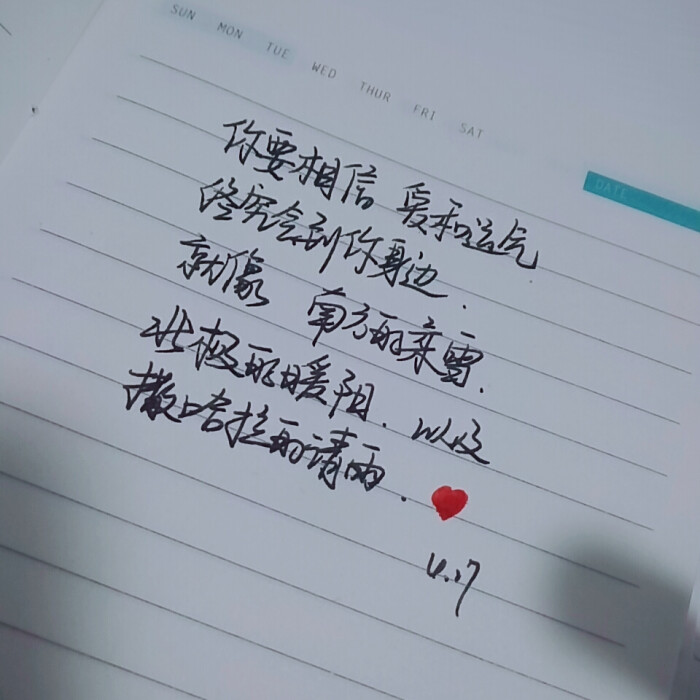 SUN MON TUE WED THUR FRI SAT
DATE
你要相信 爱和运气
终究会到你身边.
就像 南方的来雪.
北极的暖阳. 以及
撒哈拉的请雨. ❤
4.17